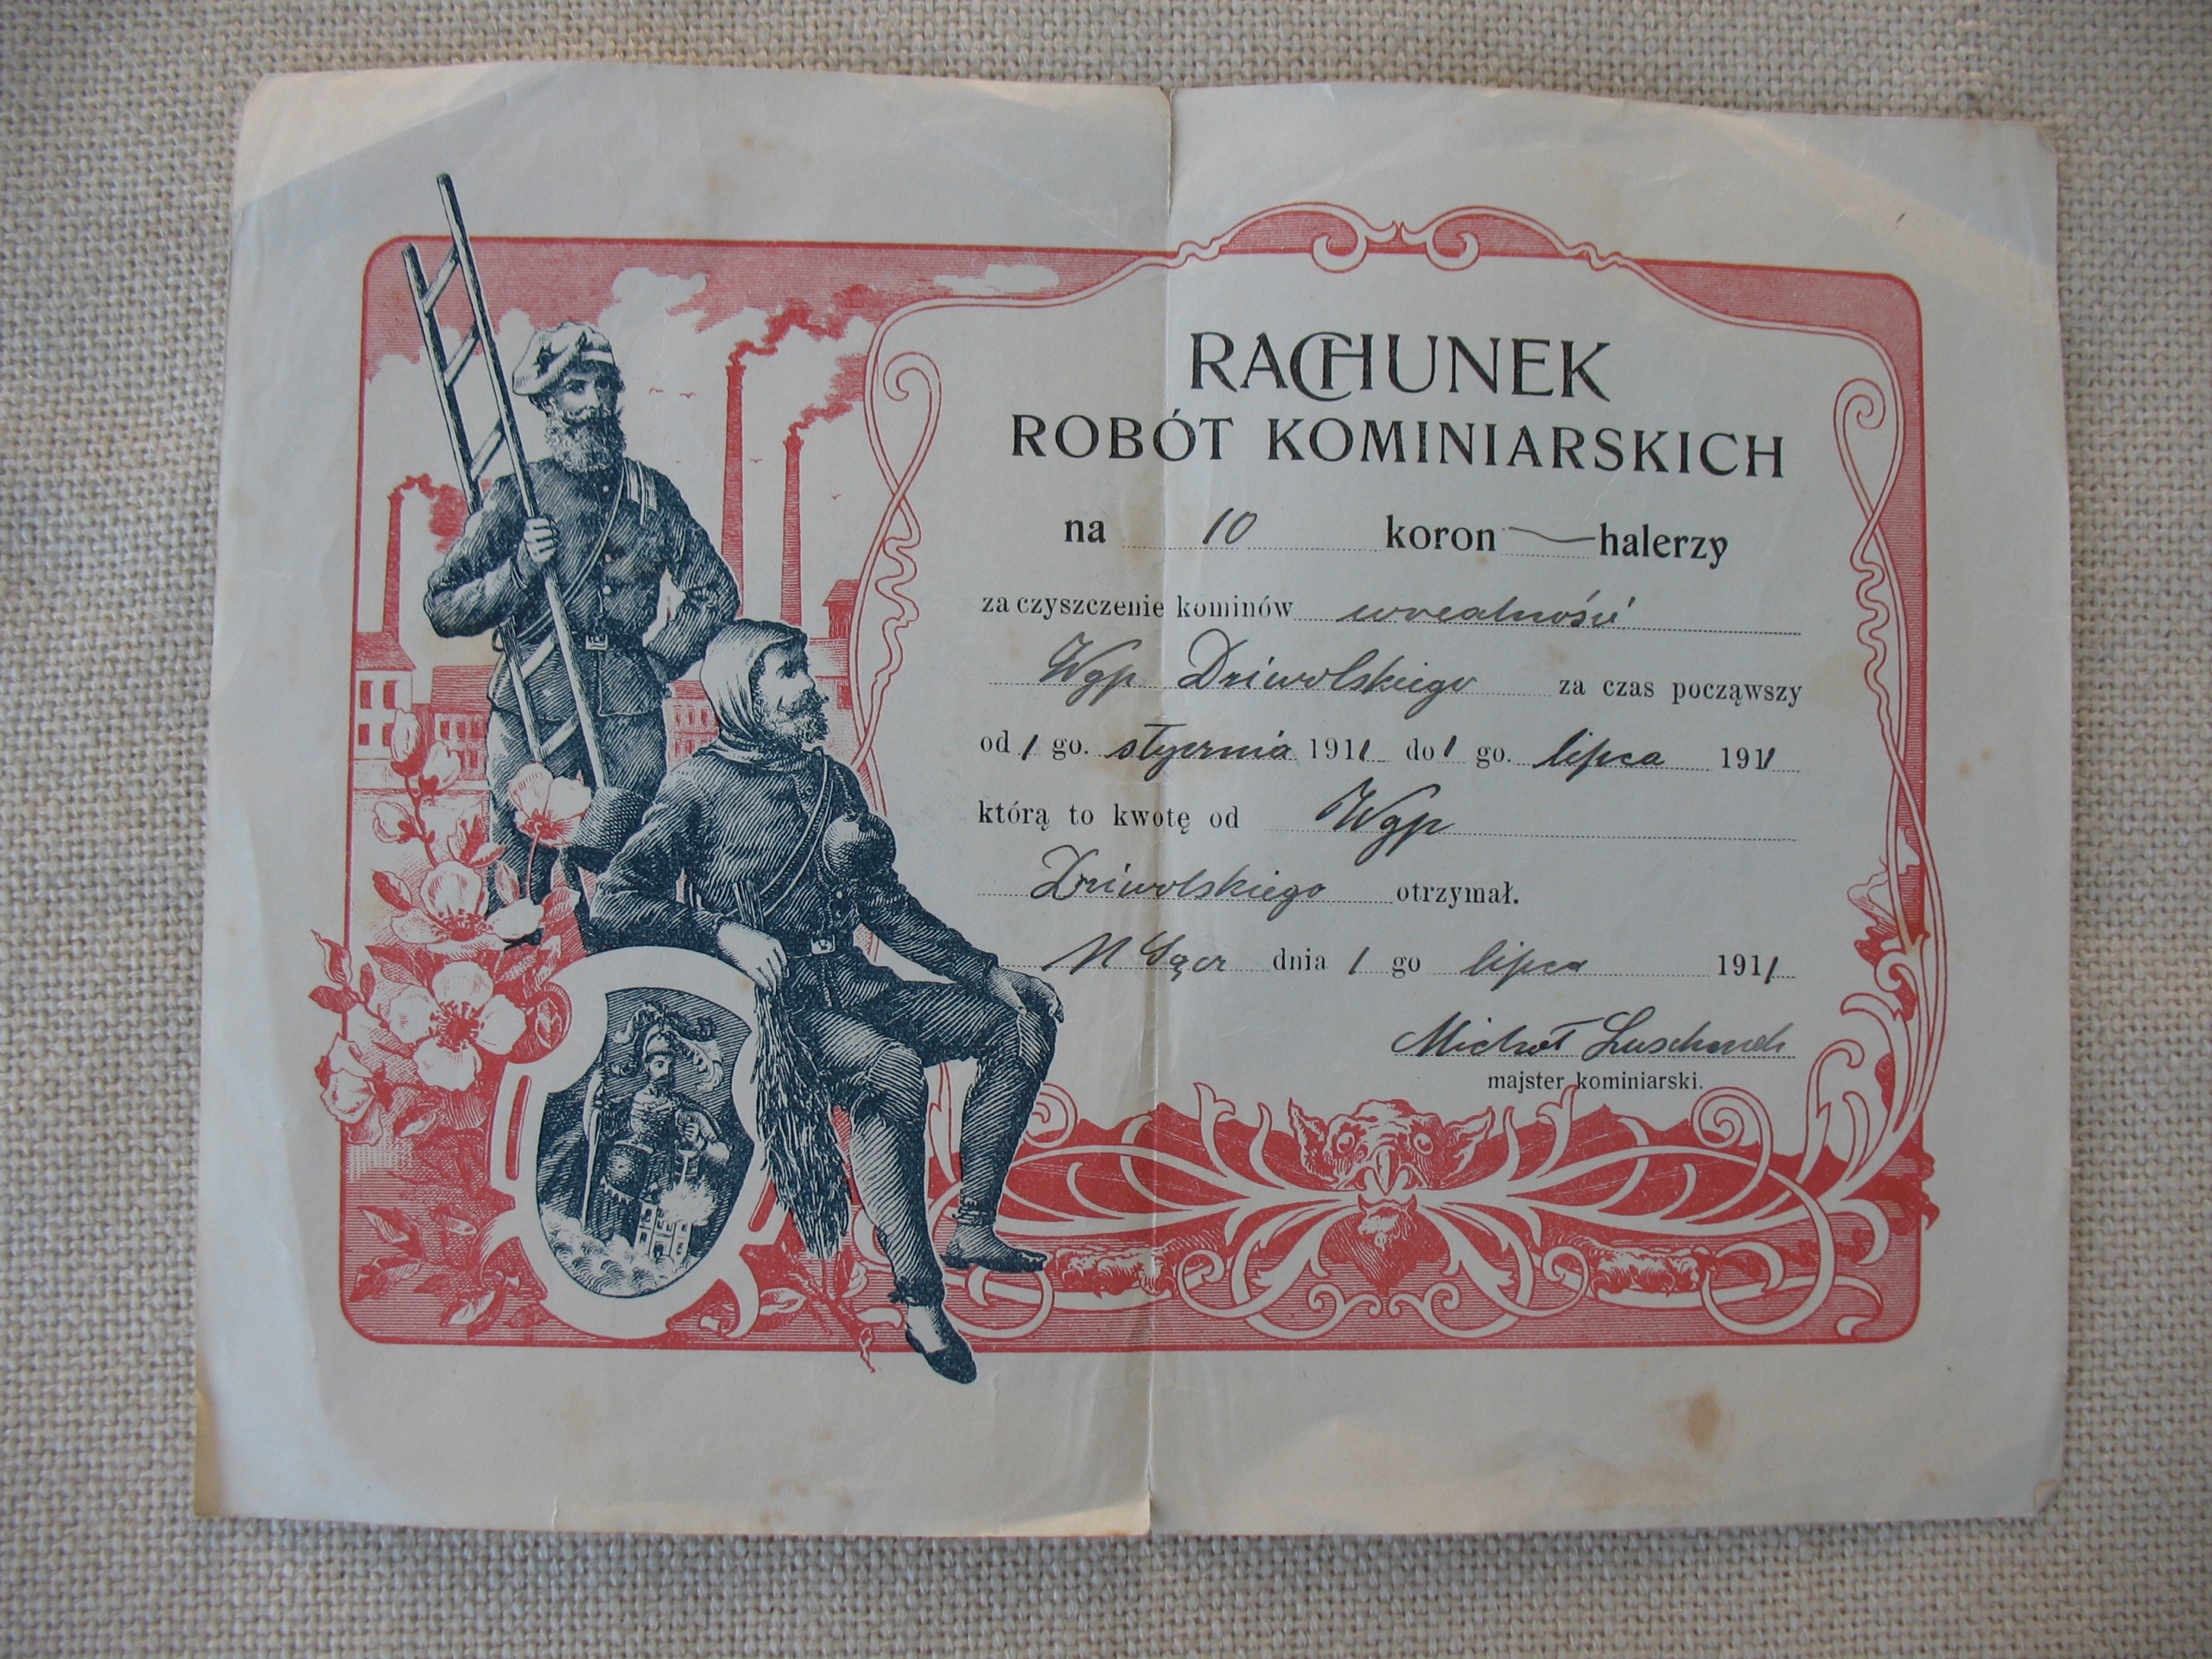 RACHUNEK
ROBÓT KOMINIARSKICH
na 10 koron — halerzy
za czyszczenie kominów wrealności
Wgp Dziwolskiego za czas począwszy
od 1 go. stycznia 1911 do 1 go. lipca 1911
którą to kwotę od Wgp
Dziwolskiego otrzymał.
N Sącz dnia 1 go lipca 1911
Michał
majster kominiarski.